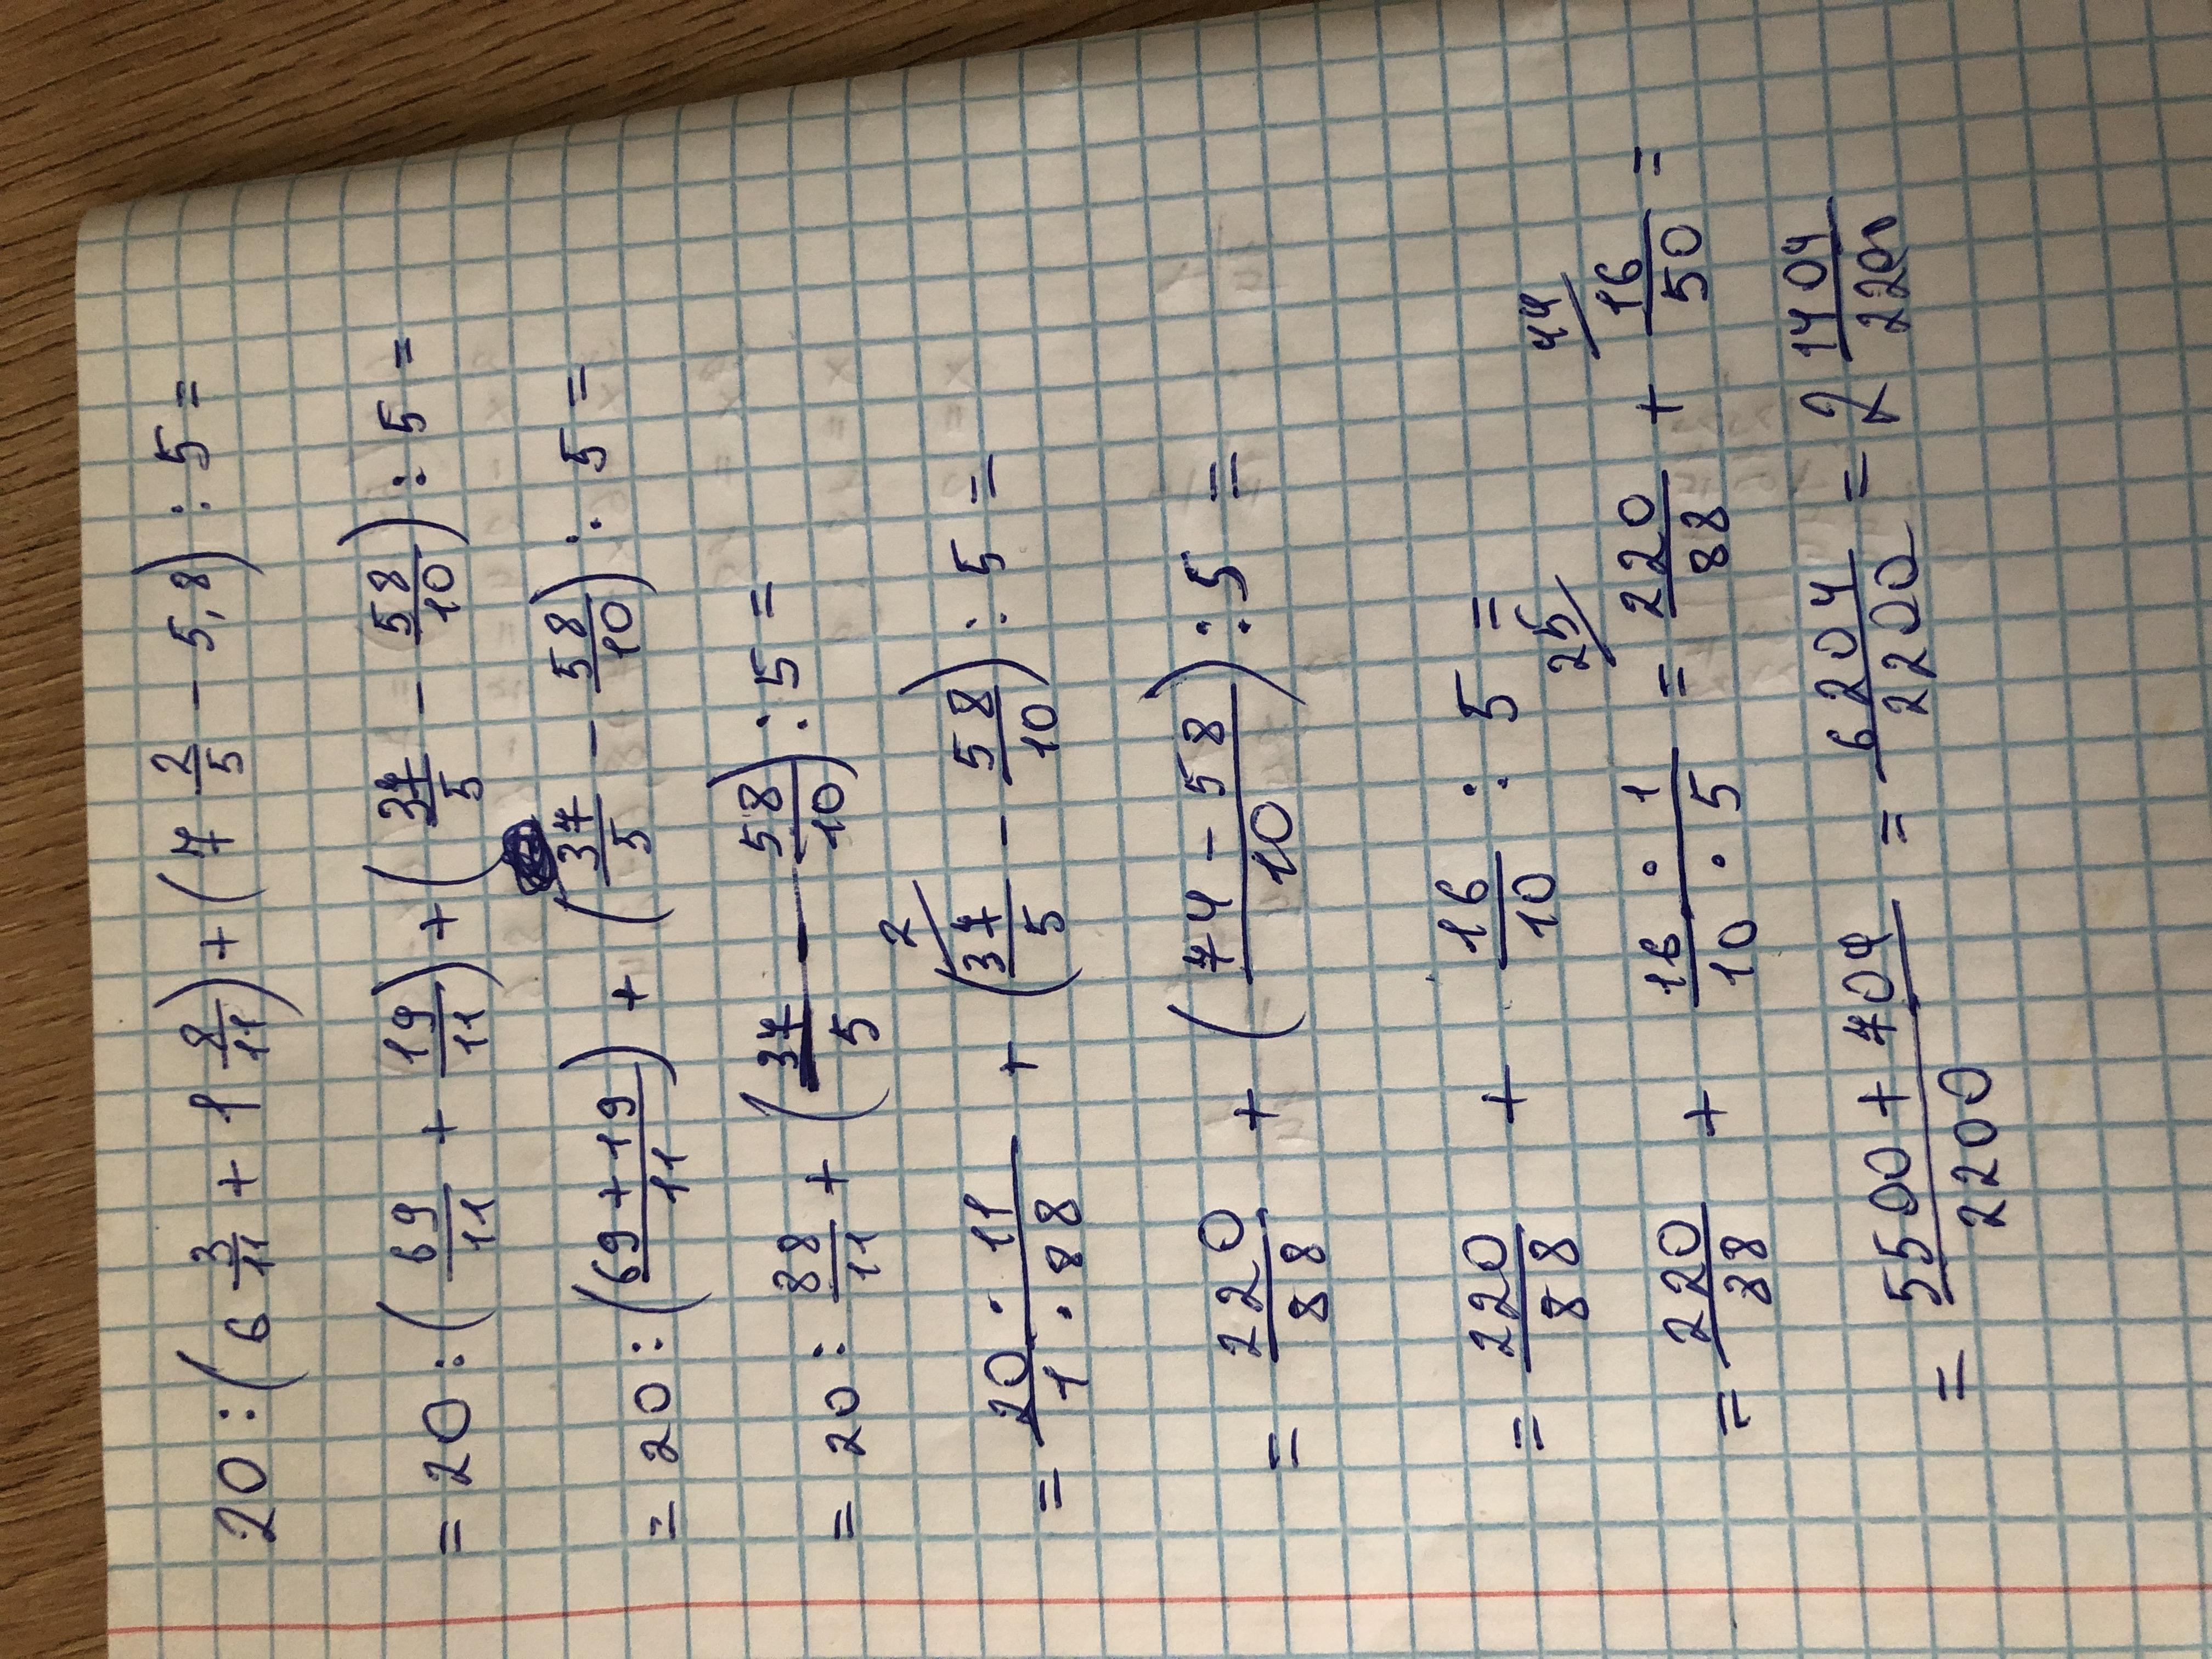 20 : (6 3/11 + 1 8/11) + (7 2/5 - 5,8) : 5 =
= 20 : (69/11 + 19/11) + (37/5 - 58/10) : 5 =
= 20 : (69 + 19/11) + (37/5 - 58/10) : 5 =
= 20 : 88/11 + (37/5 - 58/10) : 5 =
= 20 · 11/1 · 88 + (37/5 2/ - 58/10) : 5 =
= 220/88 + (74 - 58/10) : 5 =
= 220/88 + 16/10 : 5 =
= 220/88 + 16 · 1/10 · 5 = 220/88 25/ + 16/50 44/ =
= 5500 + 704/2200 = 6204/2200 = 2 1404/220